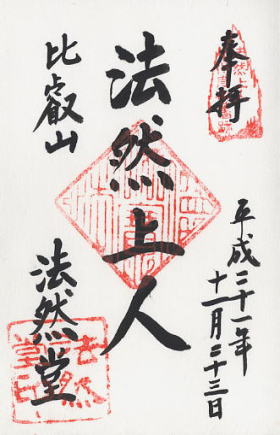 奉拝
平成二十一年
十一月二十三日
法然上人
比叡山
法然堂